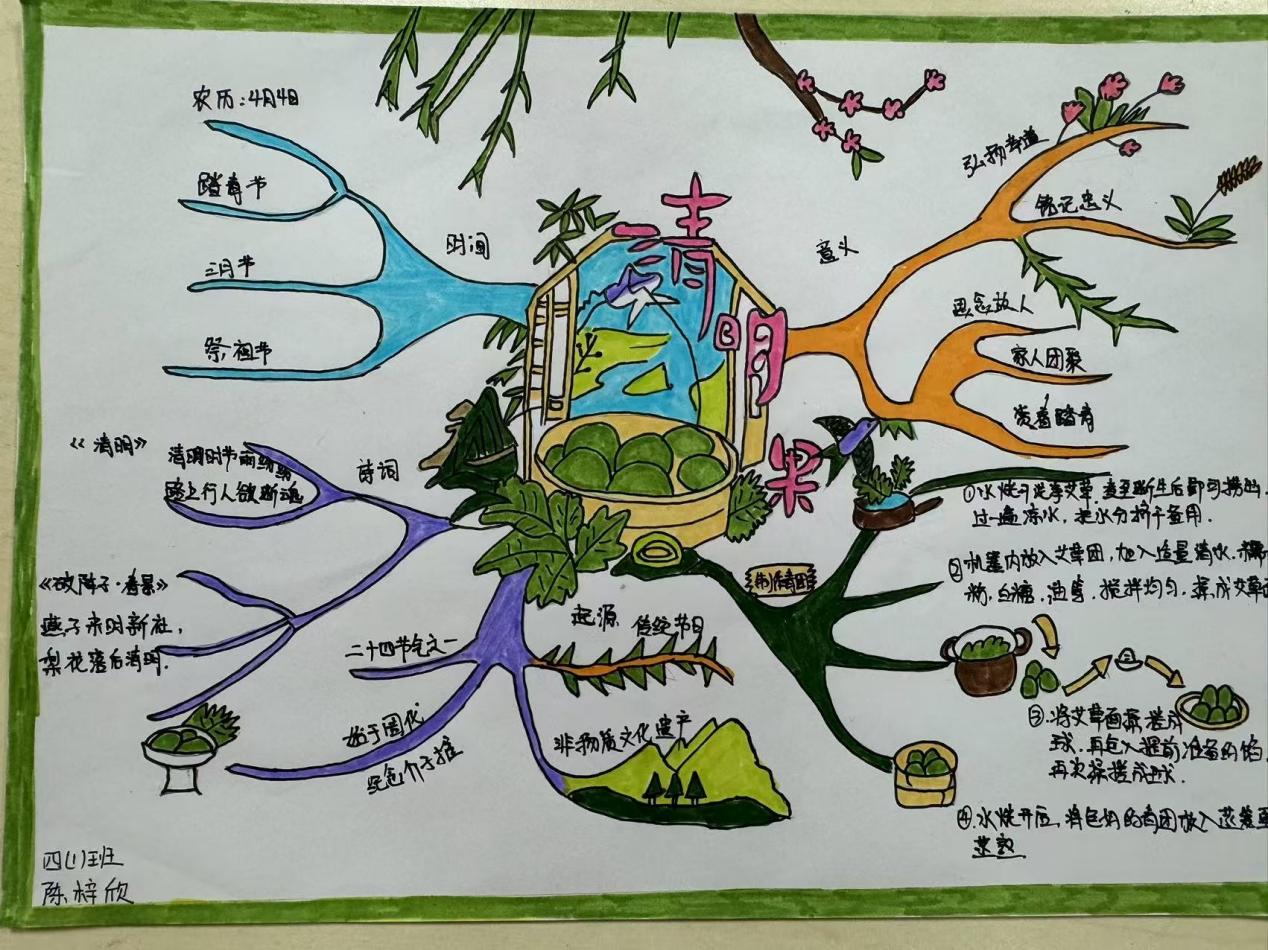 清明果
农历:4月4日
踏青节
三月节
祭祖节
时间
意义
弘扬孝道
铭记忠义
思念故人
家人团聚
赏春踏青
《清明》
清明时节雨纷纷
路上行人欲断魂
诗词
《破阵子·春景》
燕子来时新社,
梨花落后清明.
起源
传统节日
二十四节气之一
始于周代
纪念介子推
非物质文化遗产
制作青团
①水烧开洗净艾草,煮至断生后即可捞出.
过一遍凉水,把水分挤干备用.
②机器内放入艾草团,加入适量清水.糯
粉.白糖.油等.搅拌均匀.揉成艾草面
③.将艾草面揉搓成
球.再包入提前准备的馅.
再次揉搓成球.
④.水烧开后,将包好的青团放入蒸笼里
蒸熟.
四(1)班
陈梓欣